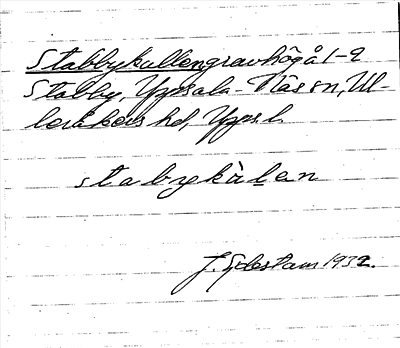 Stabbykullen gravhög å 1-2
Stabby, Uppsala-Näs sn, Ul-
leråkers hd, Upps. l.
stabykùlen
J. 1932.